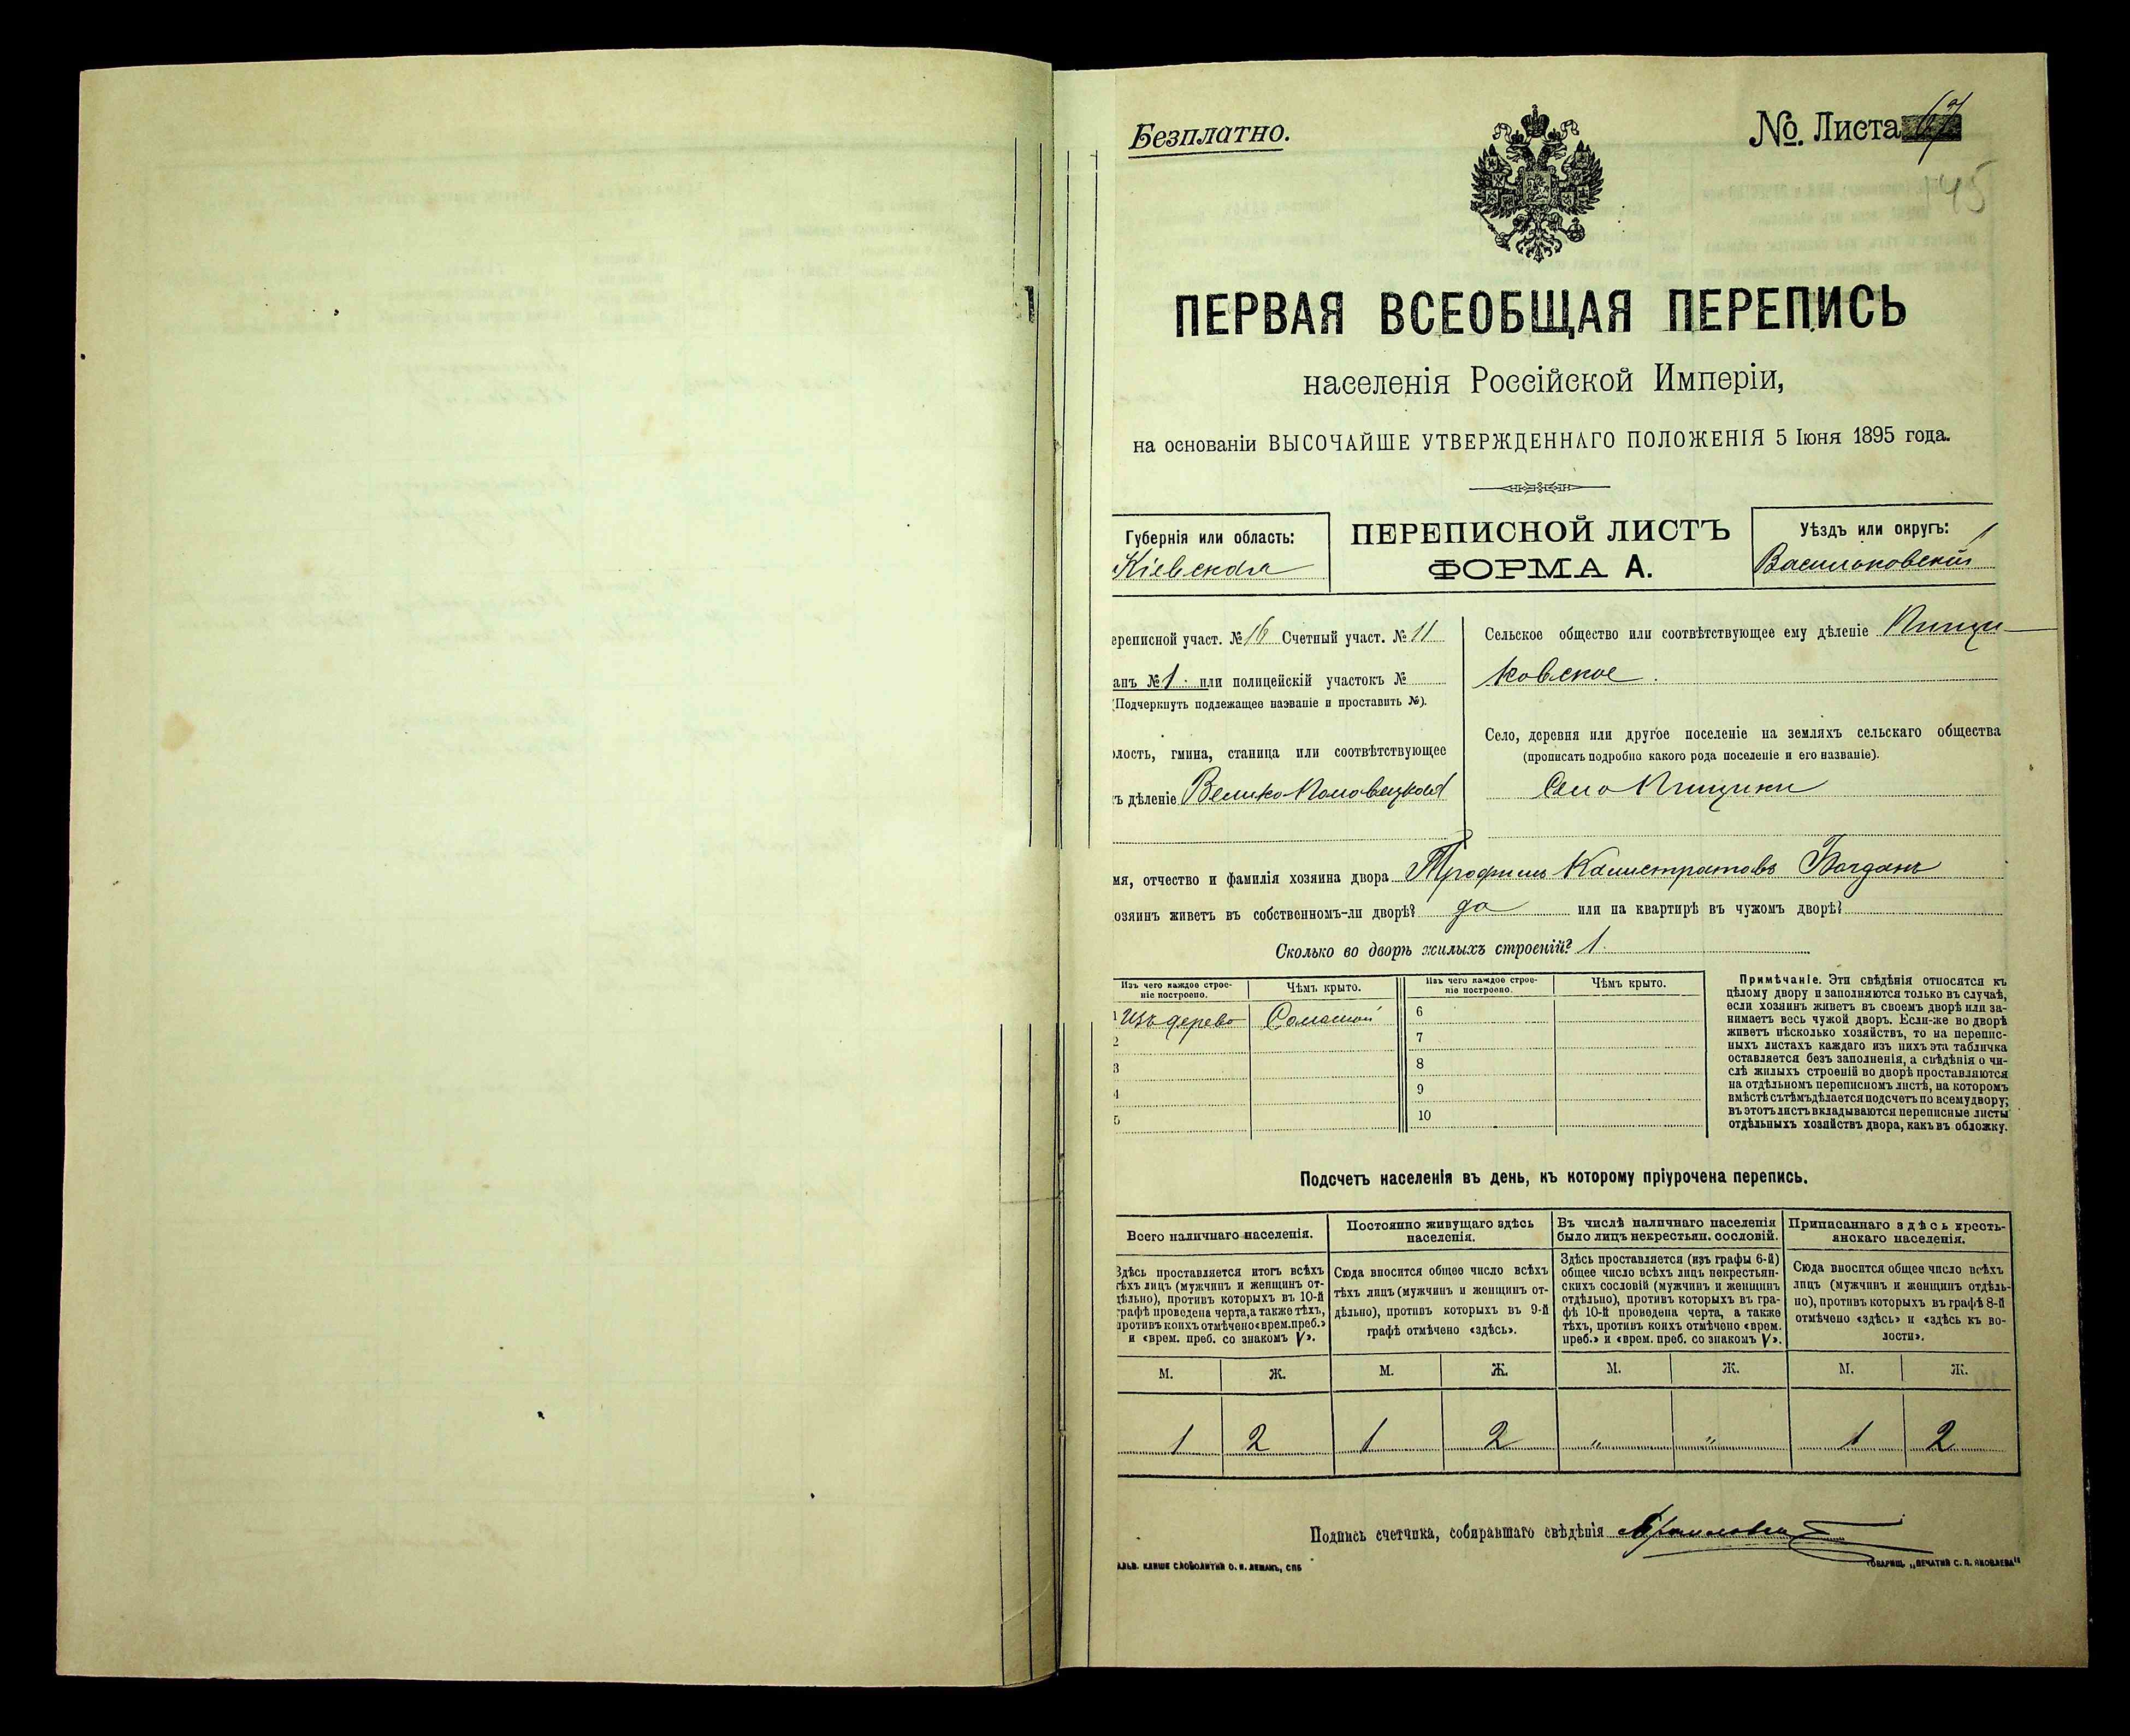 Безплатно.
№. Листа 67
145
ПЕРВАЯ ВСЕОБЩАЯ ПЕРЕПИСЬ
населенія Россійской Имперіи,
на основаніи ВЫСОЧАЙШЕ УТВЕРЖДЕННАГО ПОЛОЖЕНІЯ 5 Іюня 1895 года.
Губернія или область:
Кіевская
ПЕРЕПИСНОЙ ЛИСТЪ
ФОРМА А.
Уѣздъ или округъ:
Васильковскій
ереписной участ. № 16 Счетный участ. № 11
анъ № 1. или полицейскій участокъ №
(Подчеркнуть подлежащее названіе и проставить №).
олость, гмина, станица или соотвѣтствующее
ъ дѣленіе Велико-Половецкая
Сельское общество или соотвѣтствующее ему дѣленіе Пищи-
ковское.
Село, деревня или другое поселеніе на земляхъ сельскаго общества
(прописать подробно какого рода поселеніе и его названіе).
Село Пищики
мя, отчество и фамилія хозяина двора Трофимъ Калистратовъ Богданъ
озяинъ живетъ въ собственномъ-ли дворѣ? да или на квартирѣ въ чужомъ дворѣ?
Сколько во дворѣ жилыхъ строеній? 1.
Изъ чего каждое строе-
ніе построено.
Чѣмъ крыто.
Изъ чего каждое строе-
ніе построено.
Чѣмъ крыто.
1 Изъ дерево Соломой 6
2 7
3 8
4 9
5 10
Примѣчаніе. Эти свѣдѣнія относятся къ
цѣлому двору и заполняются только въ случаѣ,
если хозяинъ живетъ въ своемъ дворѣ или за-
нимаетъ весь чужой дворъ. Если-же во дворѣ
живетъ нѣсколько хозяйствъ, то на перепис-
ныхъ листахъ каждаго изъ нихъ эта табличка
оставляется безъ заполненія, а свѣдѣнія о чи-
слѣ жилыхъ строеній во дворѣ проставляются
на отдѣльномъ переписномъ листѣ, на которомъ
вмѣстѣ съ тѣмъ дѣлается подсчетъ по всему двору;
въ этотъ листъ вкладываются переписные листы
отдѣльныхъ хозяйствъ двора, какъ въ обложку.
Подсчетъ населенія въ день, къ которому пріурочена перепись.
Всего наличнаго населенія.
Здѣсь проставляется итогъ всѣхъ
тѣхъ лицъ (мужчинъ и женщинъ от-
дѣльно), противъ которыхъ въ 10-й
графѣ проведена черта, а также тѣхъ,
противъ коихъ отмѣчено «врем. преб.»
и «врем. преб. со знакомъ V».
Постоянно живущаго здѣсь
населенія.
Сюда вносится общее число всѣхъ
тѣхъ лицъ (мужчинъ и женщинъ от-
дѣльно), противъ которыхъ въ 9-й
графѣ отмѣчено «здѣсь».
Въ числѣ наличнаго населенія
было лицъ некрестьян. сословій.
Здѣсь проставляется (изъ графы 6-й)
общее число всѣхъ лицъ некрестьян-
скихъ сословій (мужчинъ и женщинъ
отдѣльно), противъ которыхъ въ гра-
фѣ 10-й проведена черта, а также
тѣхъ, противъ коихъ отмѣчено «врем.
преб.» и «врем. преб. со знакомъ V».
Приписаннаго здѣсь кресть-
янскаго населенія.
Сюда вносится общее число всѣхъ
лицъ (мужчинъ и женщинъ отдѣль-
но), противъ которыхъ въ графѣ 8-й
отмѣчено «здѣсь» и «здѣсь къ во-
лости».
М. Ж. М. Ж. М. Ж. М. Ж.
1 2 1 2 " " 1 2
Подпись счетчика, собиравшаго свѣдѣнія
АЛЬВ. КЛИШЕ СЛОВОЛИТНИ О. И. ЛЕМАНЪ, СПБ
ТОВАРИЩ. „ПЕЧАТНЯ С. П. ЯКОВЛЕВА"